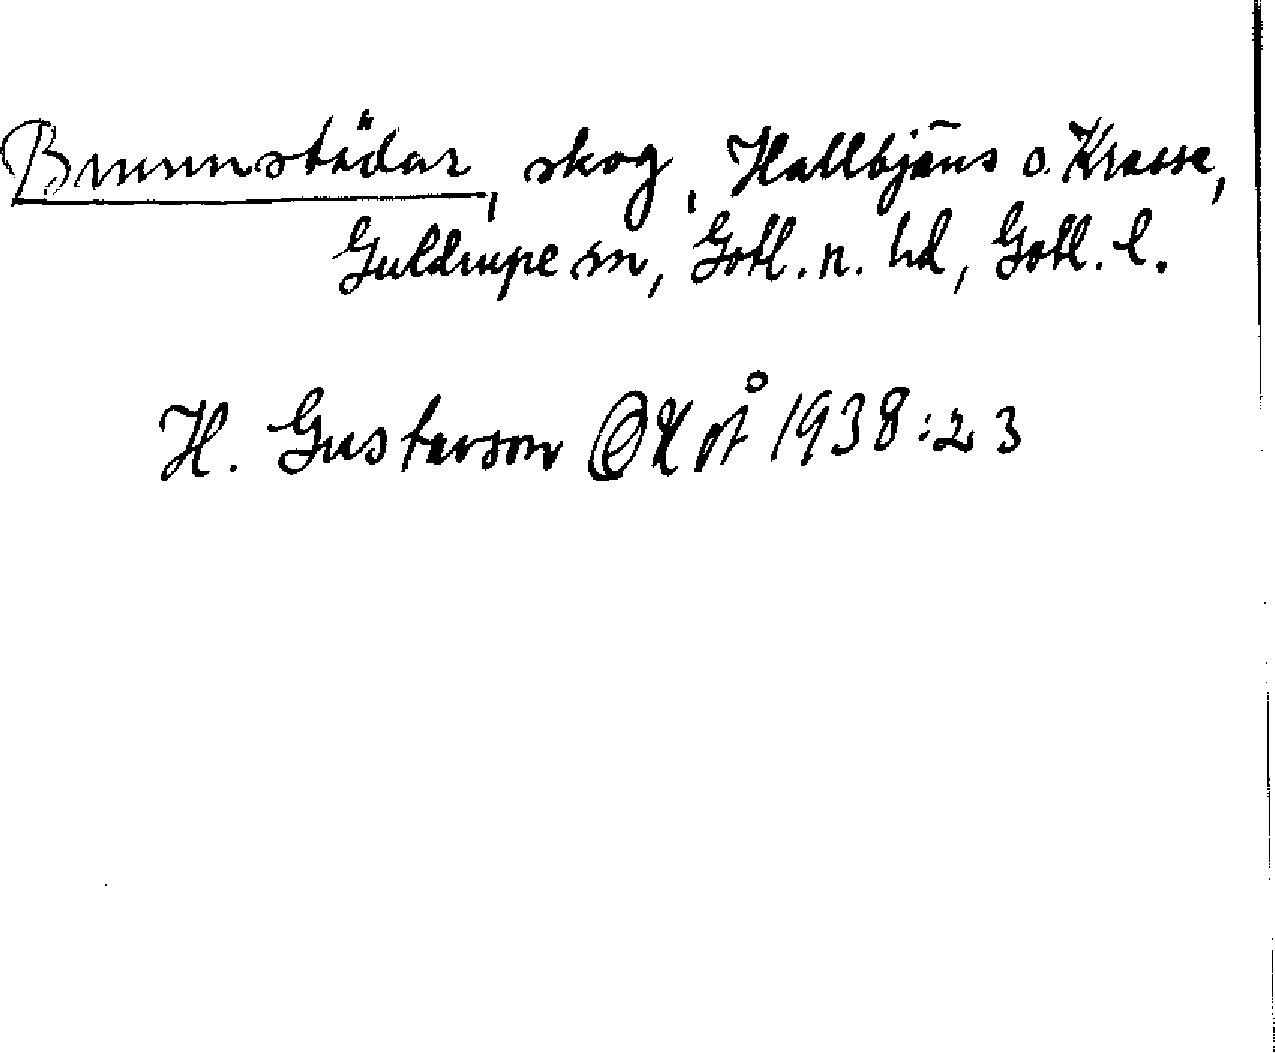 Brunnstädar, skog, Hallbjäns o. Krasse,
Guldrupe sn, Gotl. n. hd, Gotl. l.
H. Gustavson 1938:23